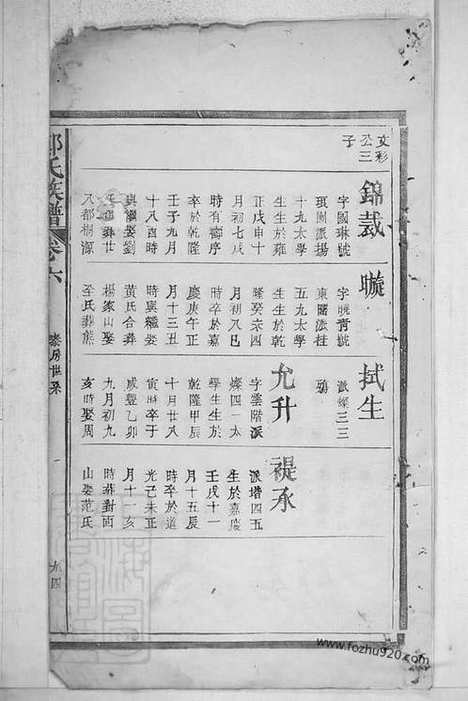 文彩
公三
子
錦裁
字國琳號
琪園派揚
十九太學
生生於雍
正戊申十
月初七戌
時有壽序
卒於乾隆
壬子九月
十八酉時
與繼娶劉
氏合葬廿
八都桐源
璇
字曉青號
東園派桂
五九太學
生生於乾
隆癸亥四
月初八巳
時卒於嘉
慶庚午正
月十三丑
時與繼娶
黃氏合葬
楊家山娶
李氏葬熊
拭生
派燦三三
鴉
允升
字雲階派
燦四一太
學生生於
乾隆甲辰
十月廿八
寅時卒于
咸豐乙卯
九月初九
亥時娶周
禔承
派增四五
生於嘉慶
壬戌十一
月十五辰
時卒於道
光己未正
月十一亥
時葬對面
山娶范氏
氏族譜
卷六
泰房世系
九四
www.fozhu920.com